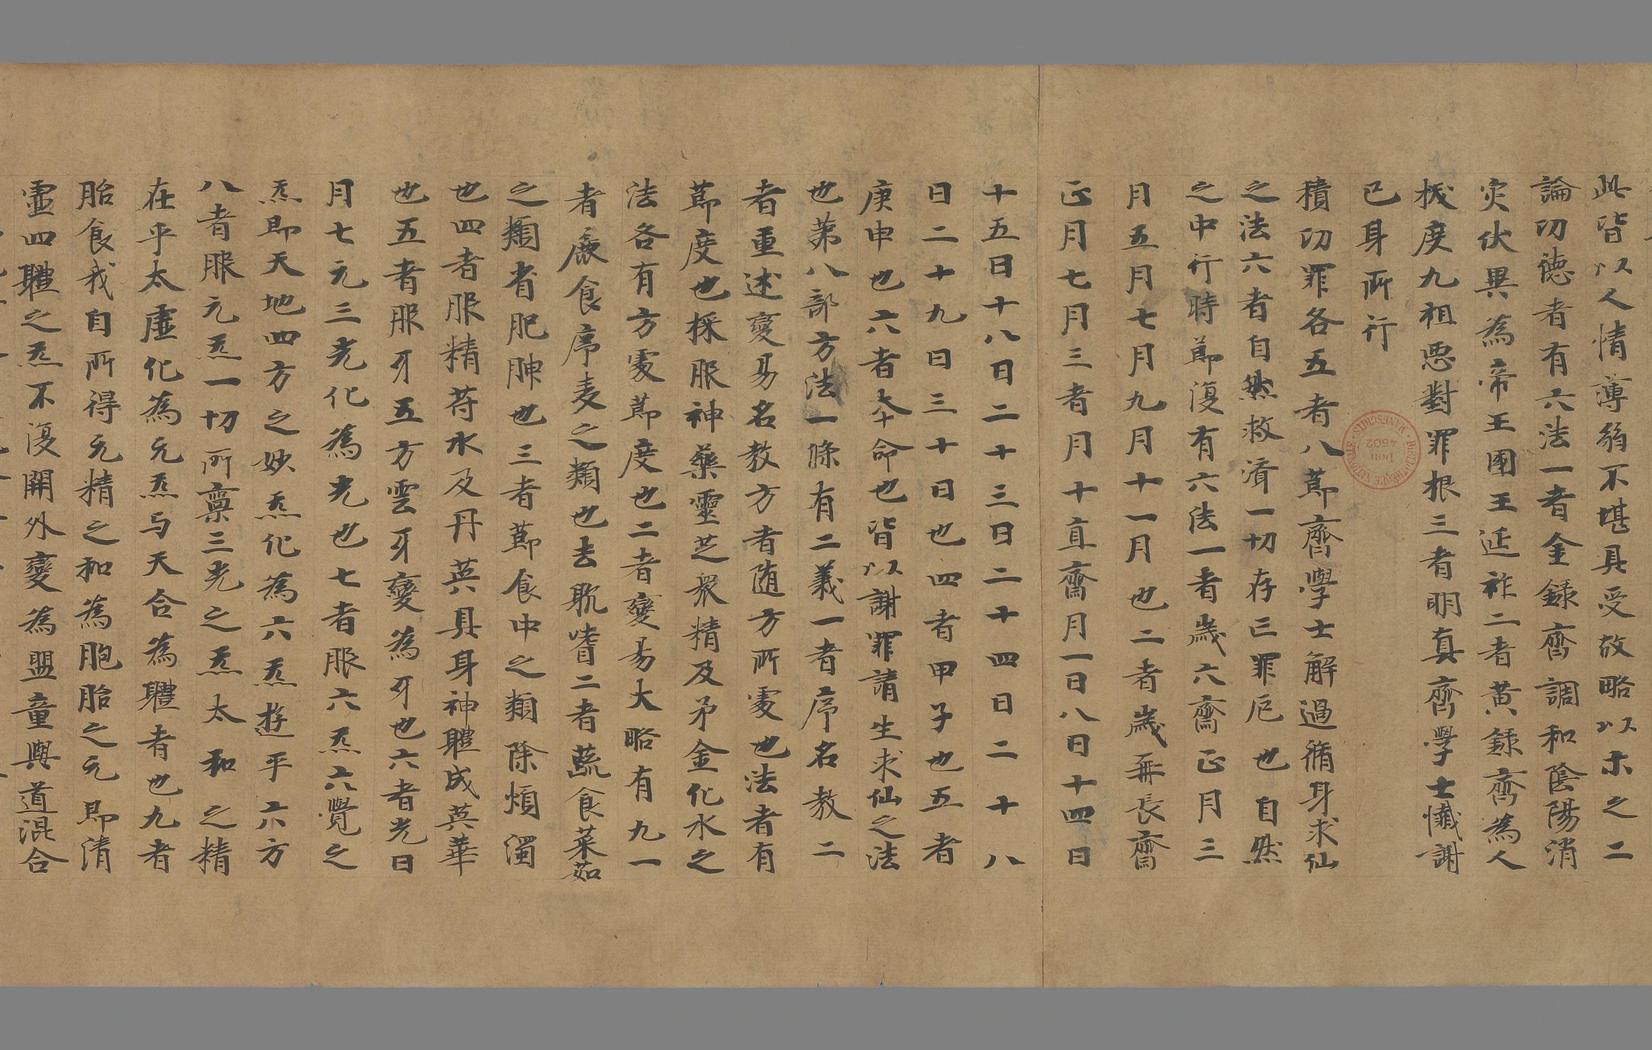 此皆以人情薄弱不堪具受故略以示之二
論功德者有六法一者金錄齊調和陰陽消
灾伏異為帝王國王延祚二者黃錄齊為人
拔度九祖惡對罪根三者明真齊學士懺謝
已身所行
積功罪各五者八節齊學士解過脩身求仙
之法六者自然救濟一切存亡罪厄也自然
之中行時節復有六法一者歲六齋正月三
月五月七月九月十一月也二者歲再長齋
正月七月三者月十直齋月一日八日十四日
十五日十八日二十三日二十四日二十八
日二十九日三十日也四者甲子也五者
庚申也六者本命也皆以謝罪請生求仙之法
也第八部方法一條有二義一者序名教二
者重述變易名教方者随方所處也法者有
節度也採服神藥靈芝衆精及矛金化水之
法各有方處節度也二者變易大略有九一
者麁食序麦之類也去耽嗜二者蔬食菜茹
之類者肥腴也三者節食中之類除煩濁
也四者服精苻水及丹英具身神體成英華
也五者服牙五方雲牙變為牙也六者光日
月七元三光化為光也七者服六炁六覺之
炁即天地四方之妙炁化為六炁遊乎六方
八者服元炁一切所禀三光之炁太和之精
在乎太虛化為元炁与天合為體者也九者
胎食我自所得元精之和為胞胎之元即清
靈四體之炁不復開外變為嬰童與道混合